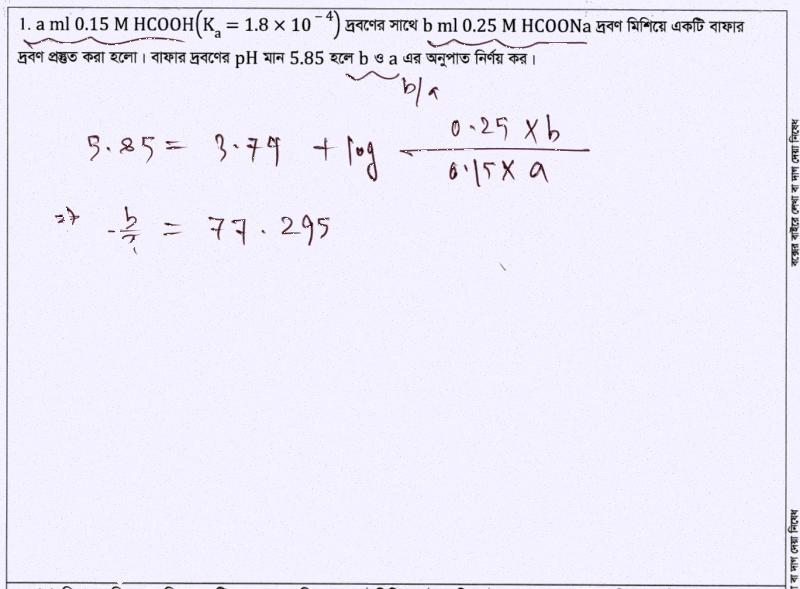 1. a ml 0.15 M HCOOH(Kₐ = 1.8 × 10⁻⁴) দ্রবণের সাথে b ml 0.25 M HCOONa দ্রবণ মিশিয়ে একটি বাফার
দ্রবণ প্রস্তুত করা হলো। বাফার দ্রবণের pH মান 5.85 হলে b ও a এর অনুপাত নির্ণয় কর।
b/a
5.85 = 3.74 + log (0.25 × b)/(0.15 × a)
⇒ b/a = 77.295
বক্সের বাইরে লেখা বা দাগ দেয়া নিষেধ
বা দাগ দেয়া নিষেধ